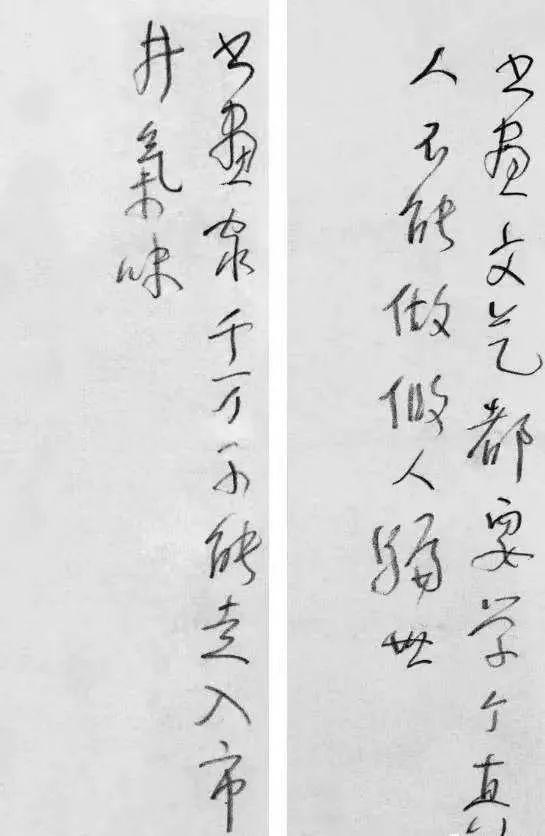 书畫文艺都要学个真
人不能做假人骗世
书畫家千万不能走入市
井氣味